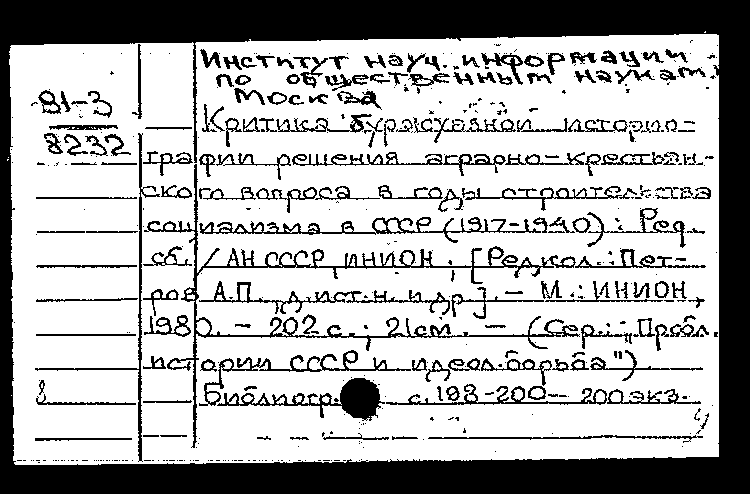 Институт науч. информации
по общественным наукам.
Москва
81-3
8232
Критика буржуазной историо-
графии решения аграрно-крестьян-
ского вопроса в годы строительства
социализма в СССР (1917-1940): Реф.
сб. / АН СССР, ИНИОН; [Редкол.: Пет-
ров А.П., д.ист.н. и др.]. – М.: ИНИОН,
1980. – 202 с.; 21см. – (Сер.: „Пробл.
истории СССР и идеол. борьба").
Библиогр. с. 198-200 – 200 экз.